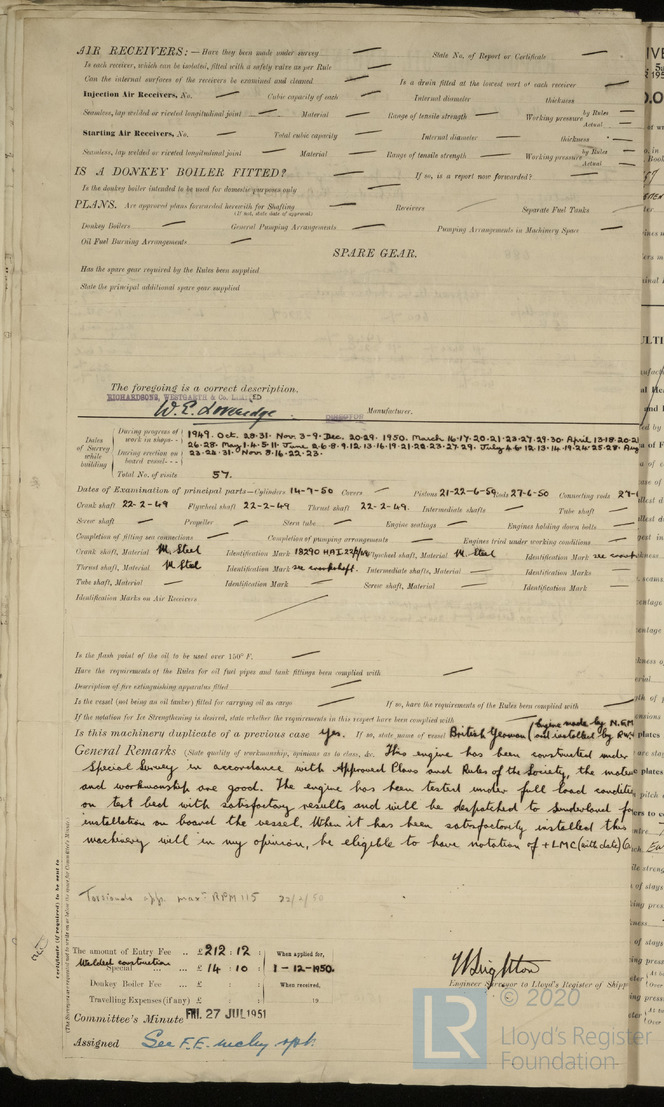 AIR RECEIVERS:— Have they been made under survey — State No. of Report or Certificate —
Is each receiver, which can be isolated, fitted with a safety valve as per Rule —
Can the internal surfaces of the receivers be examined and cleaned — Is a drain fitted at the lowest part of each receiver —
Injection Air Receivers, No. — Cubic capacity of each — Internal diameter — thickness —
Seamless, lap welded or riveted longitudinal joint — Material — Range of tensile strength — Working pressure by Rules — Actual —
Starting Air Receivers, No. — Total cubic capacity — Internal diameter — thickness —
Seamless, lap welded or riveted longitudinal joint — Material — Range of tensile strength — Working pressure by Rules — Actual —
IS A DONKEY BOILER FITTED? — If so, is a report now forwarded? —
Is the donkey boiler intended to be used for domestic purposes only —
PLANS. Are approved plans forwarded herewith for Shafting — Receivers — Separate Fuel Tanks —
(If not, state date of approval)
Donkey Boilers — General Pumping Arrangements — Pumping Arrangements in Machinery Space —
Oil Fuel Burning Arrangements —
SPARE GEAR.
Has the spare gear required by the Rules been supplied
State the principal additional spare gear supplied
The foregoing is a correct description.
RICHARDSONS, WESTGARTH & Co. LIMITED
DIRECTOR Manufacturer.
Dates of Survey while building
During progress of work in shops - - 1949. Oct. 28.31. Nov. 3-9. Dec. 20.29. 1950. March 16.17.20.21.23.27.29.30. April 13.18.20.21
26.28. May 1.4.5.11. June 2.6.8.9.12.13.16.19.21.22.23.27.29. July 4.6.12.13.14.19.24.25.28. Aug
During erection on board vessel - - - 23.28.31. Nov 8.16.22.23.
Total No. of visits 57.
Dates of Examination of principal parts—Cylinders 14-9-50 Covers — Pistons 21-22-6-50 Rods 27-6-50 Connecting rods 27-
Crank shaft 22-2-49 Flywheel shaft 22-2-49 Thrust shaft 22-2-49. Intermediate shafts — Tube shaft —
Screw shaft — Propeller — Stern tube — Engine seatings — Engines holding down bolts —
Completion of fitting sea connections — Completion of pumping arrangements — Engines tried under working conditions —
Crank shaft, Material M. Steel Identification Mark 18290 HAI 22/2/49 Flywheel shaft, Material M. Steel Identification Mark see crank
Thrust shaft, Material M. Steel Identification Mark see crankshaft. Intermediate shafts, Material — Identification Marks —
Tube shaft, Material — Identification Mark — Screw shaft, Material — Identification Mark —
Identification Marks on Air Receivers
Is the flash point of the oil to be used over 150° F. —
Have the requirements of the Rules for oil fuel pipes and tank fittings been complied with —
Description of fire extinguishing apparatus fitted —
Is the vessel (not being an oil tanker) fitted for carrying oil as cargo — If so, have the requirements of the Rules been complied with —
If the notation for Ice Strengthening is desired, state whether the requirements in this respect have been complied with —
Is this machinery duplicate of a previous case Yes. If so, state name of vessel British Yeoman (Engine made by N.E.M and installed by RW
General Remarks (State quality of workmanship, opinions as to class, &c. This engine has been constructed under
Special Survey in accordance with Approved Plans and Rules of the Society, the mate
and workmanship are good. The engine has been tested under full load conditio
on test bed with satisfactory results and will be despatched to Sunderland for
installation on board the vessel. When it has been satisfactorily installed this
machinery will in my opinion, be eligible to have notation of +LMC (with date)
Torsionals app. max RPM 115 22/2/50
The amount of Entry Fee .. £ 212 : 12 : When applied for,
Welded construction
Special ... £ 14 : 10 : 1-12-1950.
Donkey Boiler Fee ... £ : : When received,
Travelling Expenses (if any) £ : : 19
Engineer Surveyor to Lloyd's Register of Shipp
Committee's Minute FRI. 27 JUL 1951
Assigned See F.E. mchy rpt.
© 2020
LR
Lloyd's Register
Foundation